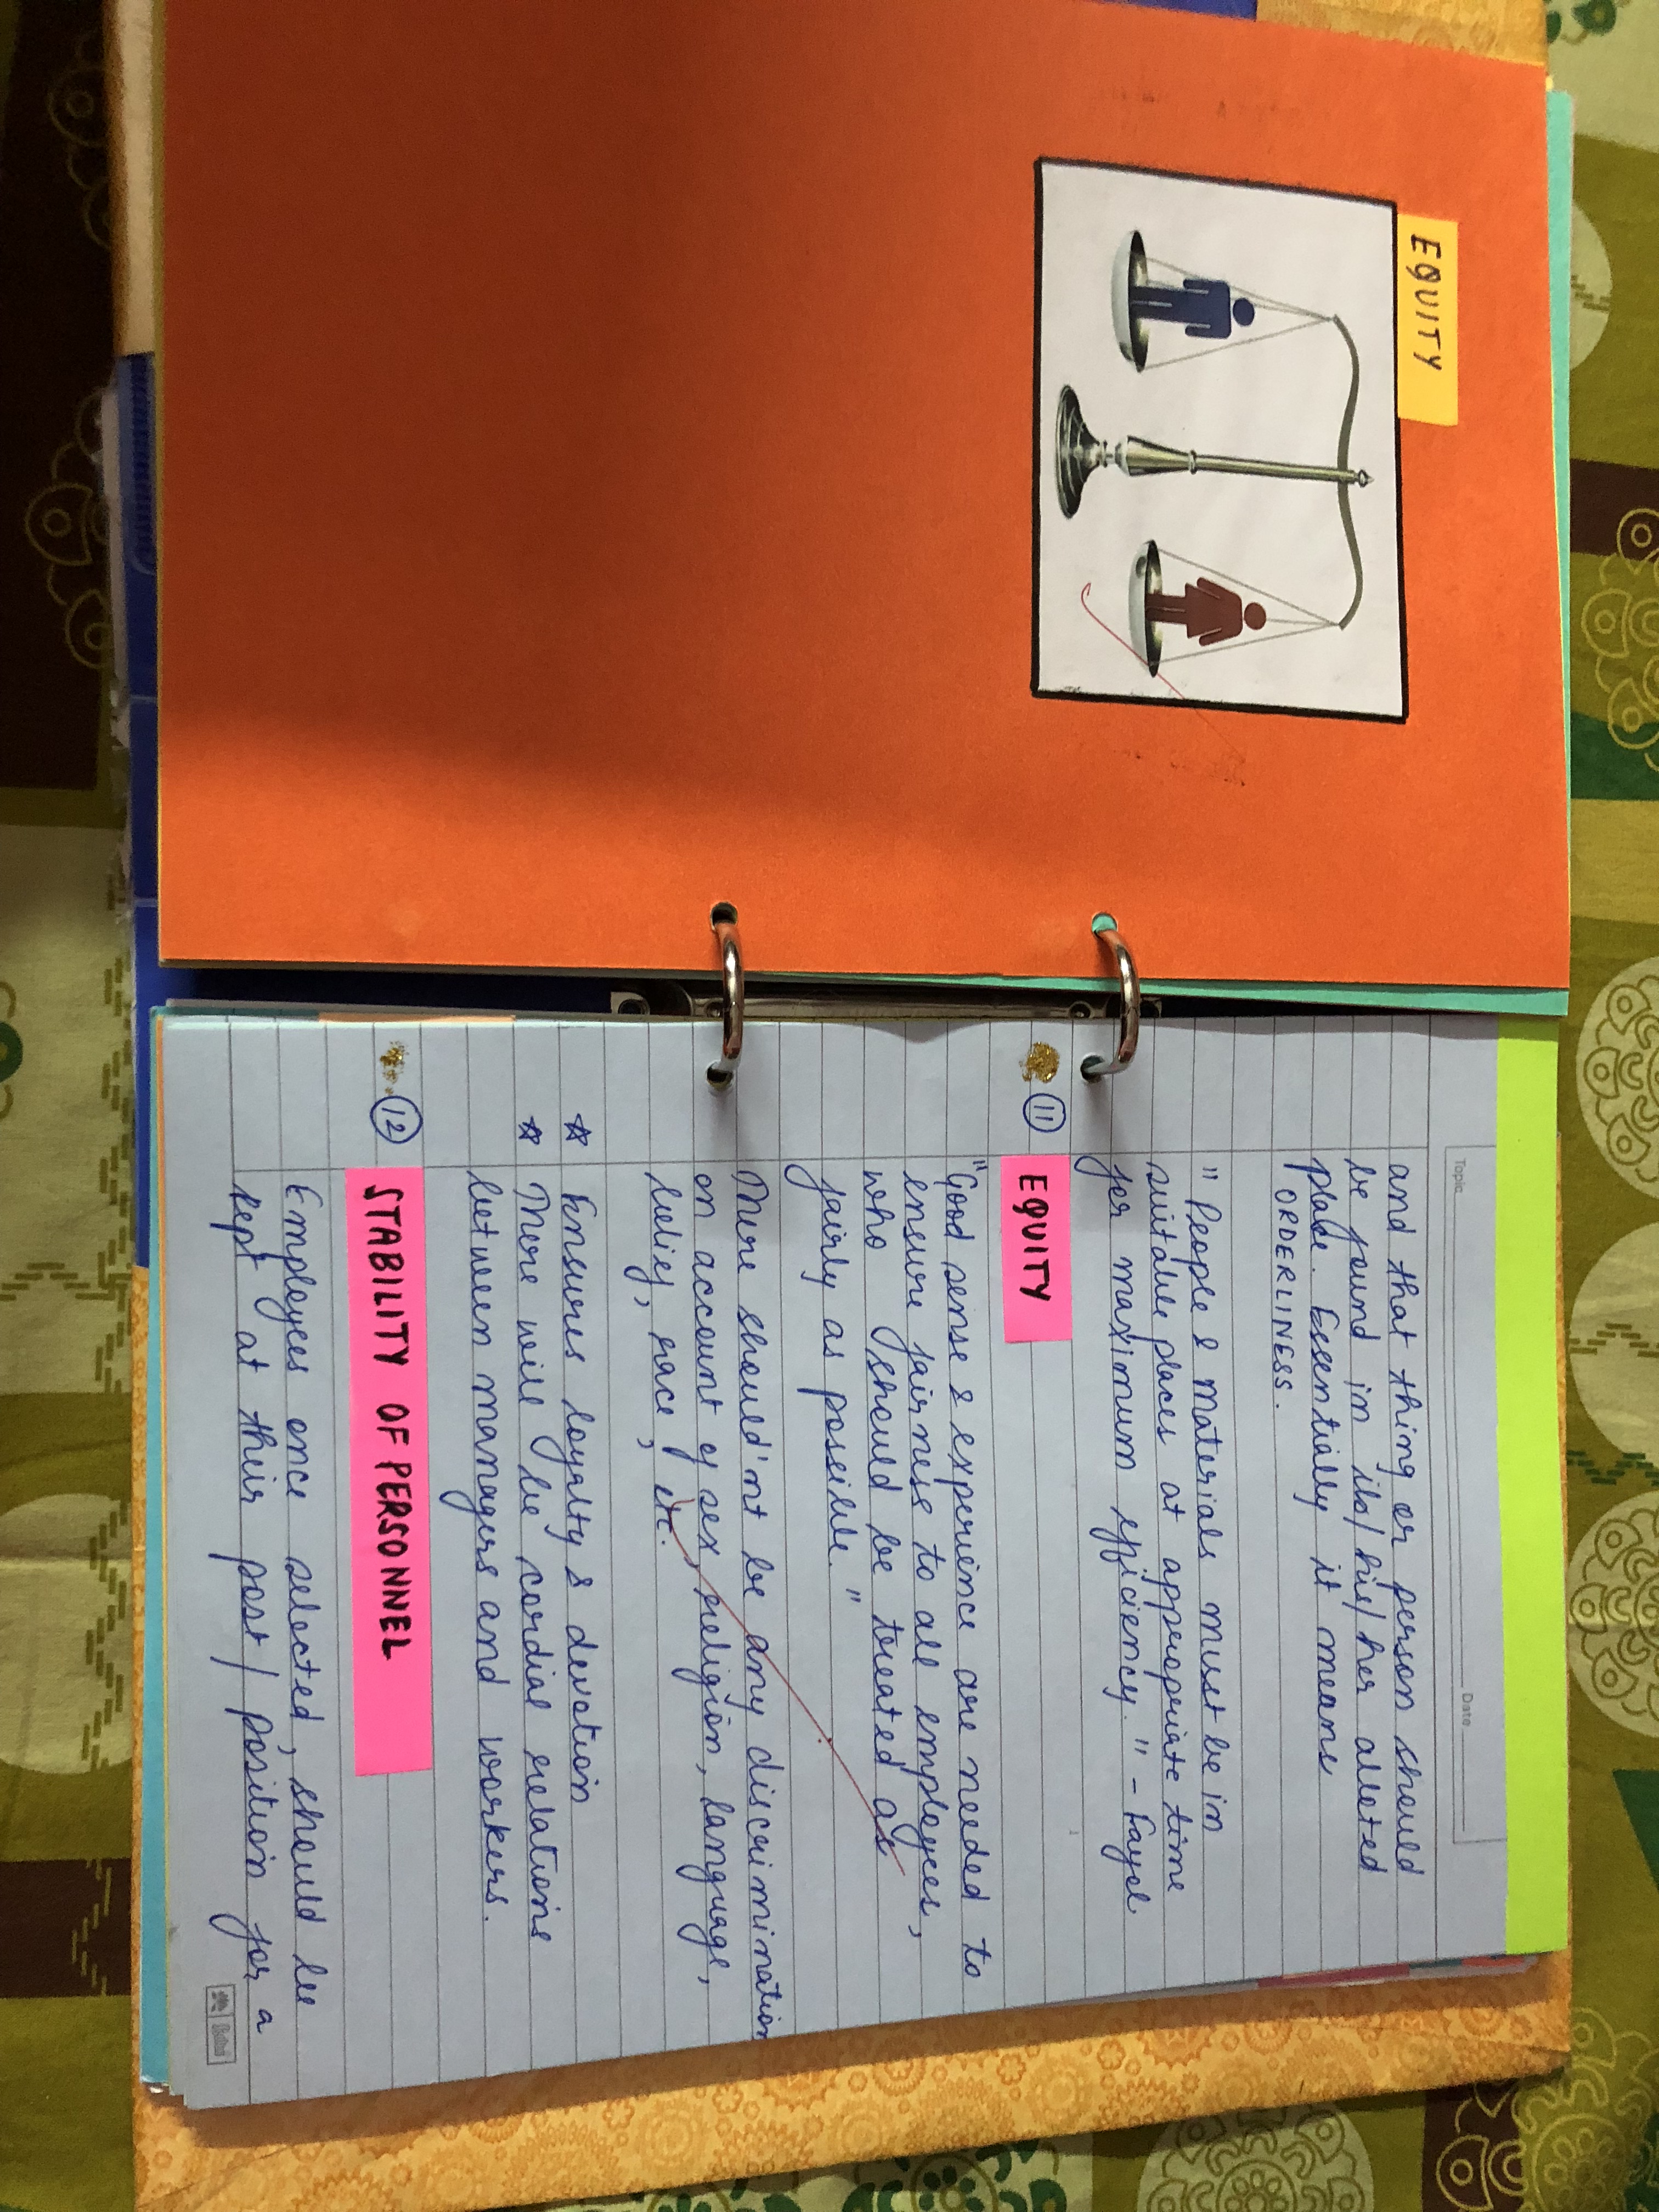 EQUITY
Topic Date
and that thing or person should
be found in its/his/her alloted
place. Essentially it means
ORDERLINESS.
"People & materials must be in
suitable places at appropriate time
for maximum efficiency." - Fayol
11 EQUITY
"Good sense & experience are needed to
ensure fairness to all employees,
who should be treated as
fairly as possible."
There should'nt be any discrimination
on account of sex, religion, language,
belief, race, etc.
☆ Ensures loyalty & devotion
☆ There will be cordial relations
between managers and workers.
12 STABILITY OF PERSONNEL
Employees once selected, should be
kept at their post/position for a